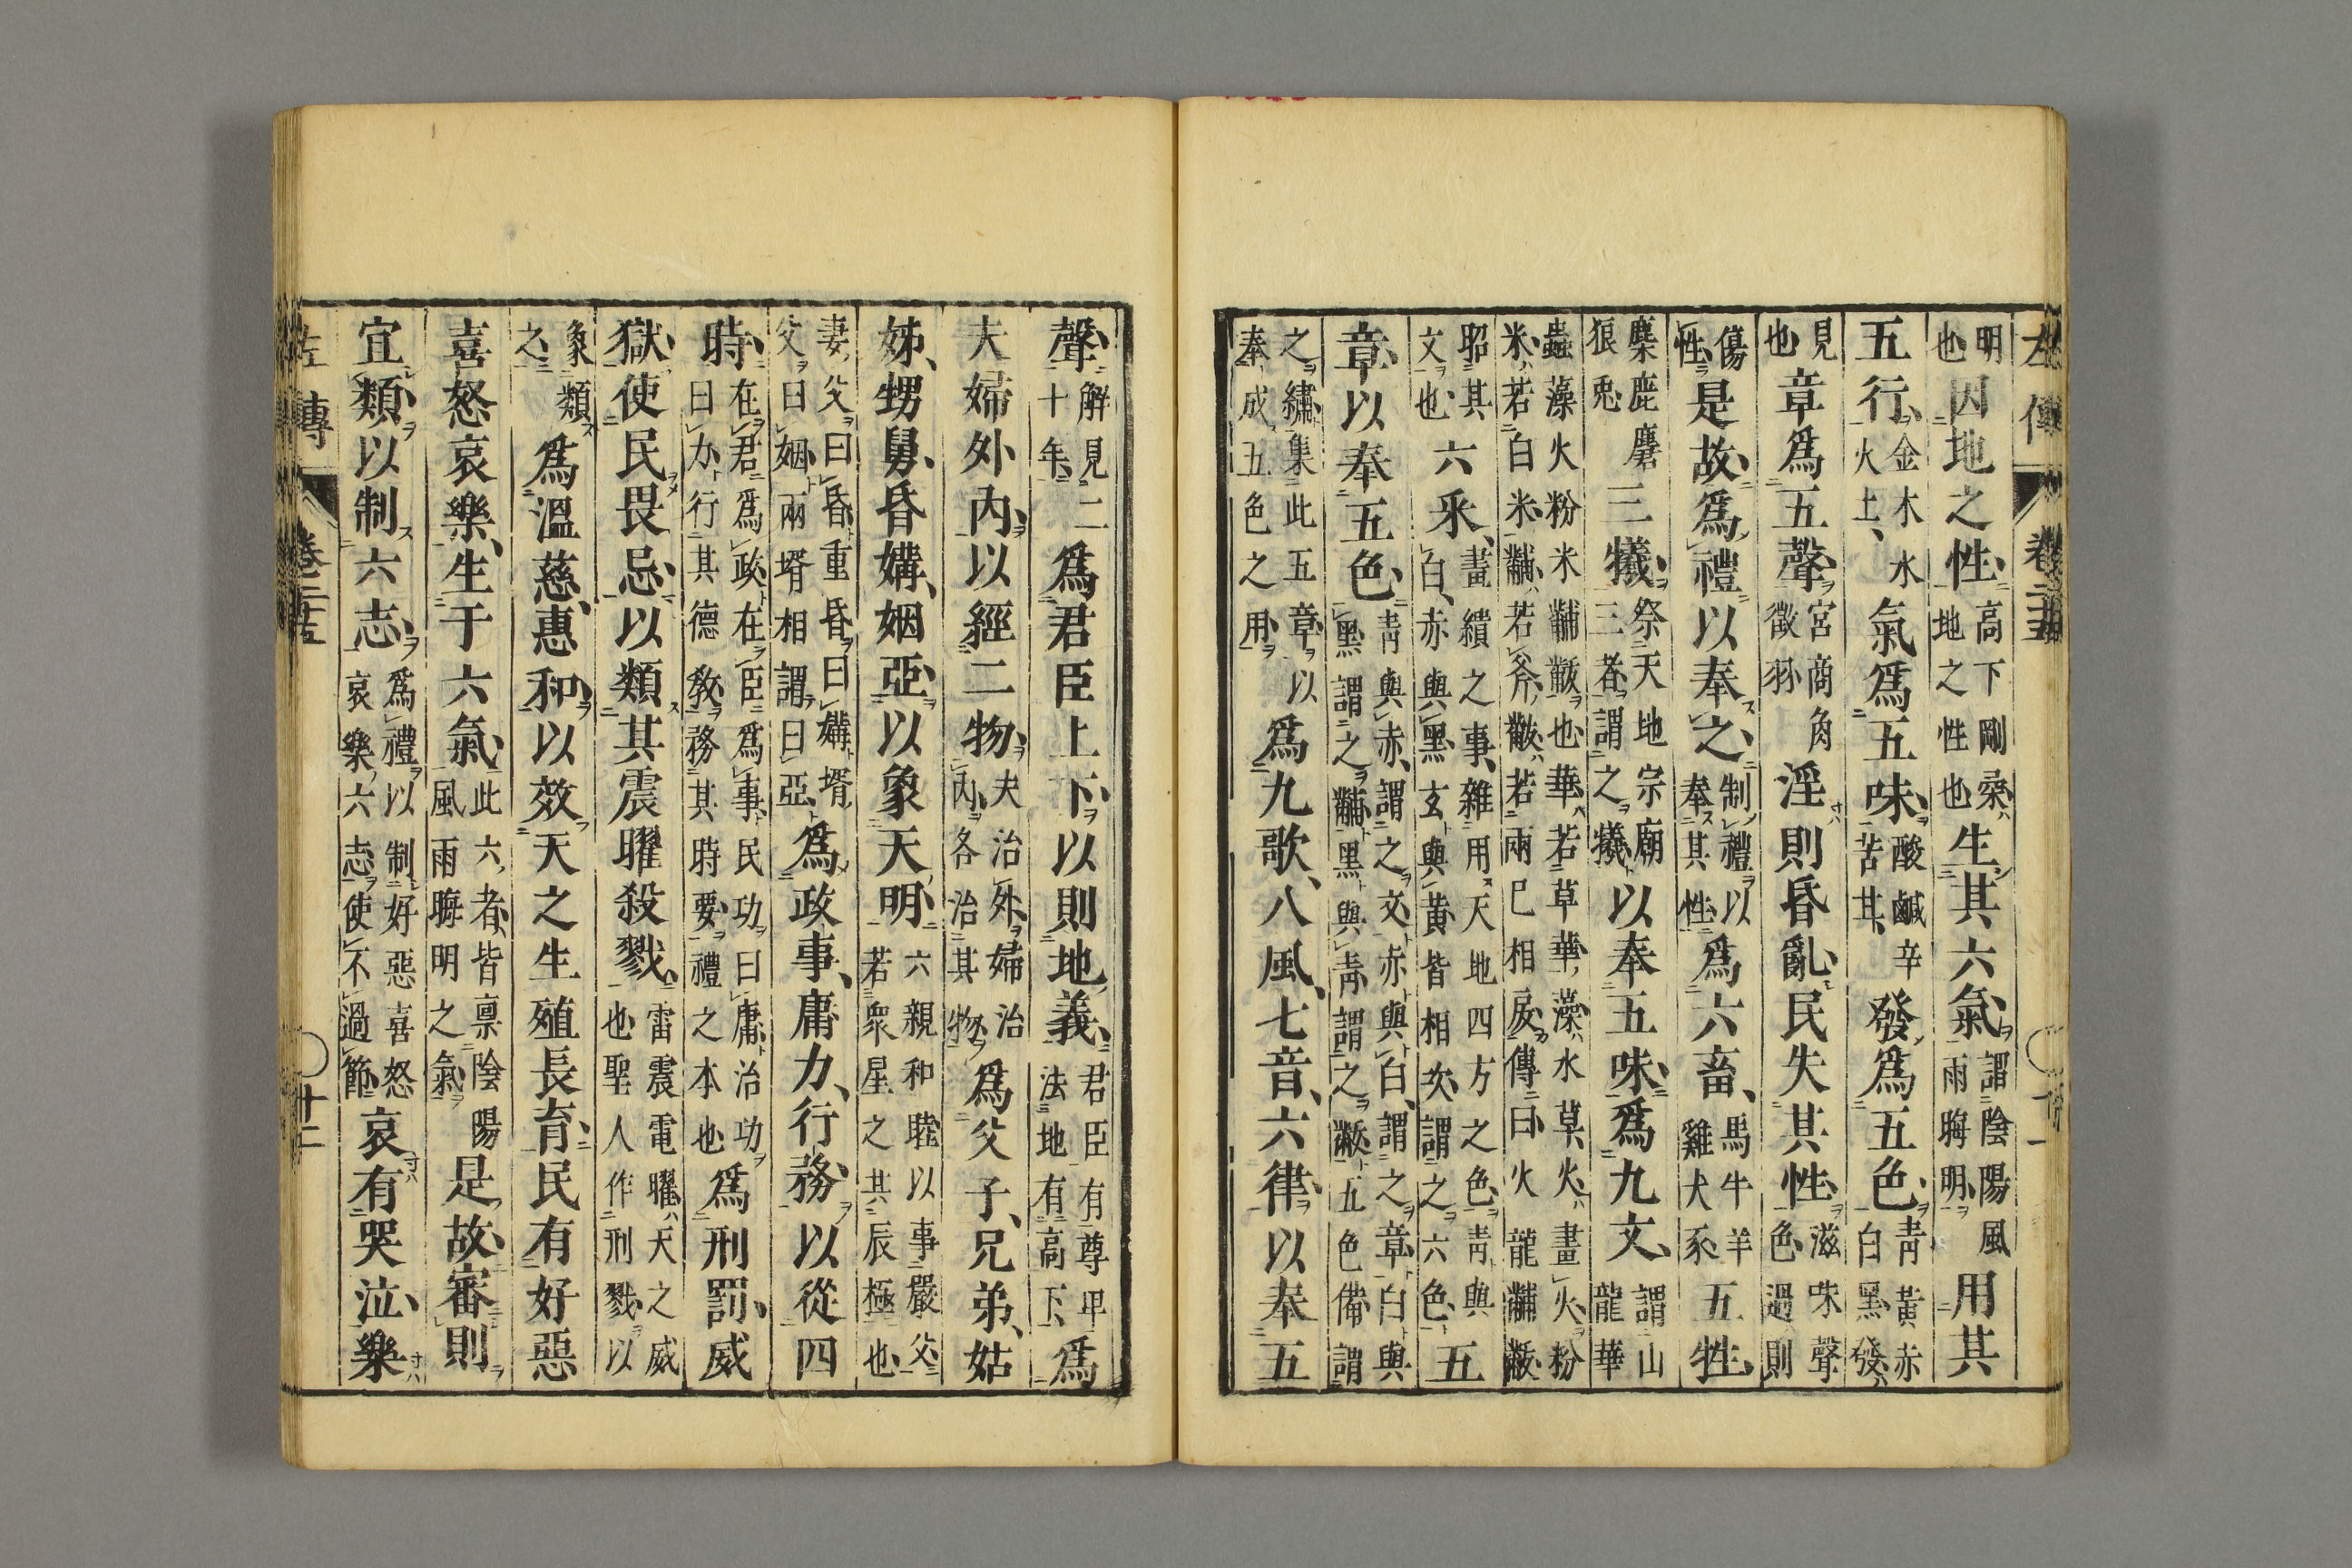 左傳 卷二十五 十一
明也因地之性高下剛柔地之性也生其六氣謂陰陽風雨晦明用其
五行金木水火土氣爲五味酸鹹辛苦甘發爲五色靑黃赤白黑發
見也章爲五聲宮商角徵羽淫則昏亂民失其性滋味聲色過則
傷性是故爲禮以奉之制禮以奉其性爲六畜馬牛羊雞犬豕五牲
麋鹿麏狼兎三犧祭天地宗廟三者謂之犧以奉五味爲九文謂山龍華
蟲藻火粉米黼黻也華若草華藻水草火畫火粉米若白米黼若斧黻若兩已相戾傳曰火龍黼黻
昭其文也六采畫繢之事雜用天地四方之色靑與白赤與黑玄與黃皆相次謂之六色五
章以奉五色靑與赤謂之文赤與白謂之章白與黑謂之黼黑與靑謂之黻五色備謂
之繡集此五章以奉成五色之用爲九歌八風七音六律以奉五
聲解見二十年爲君臣上下以則地義君臣有尊卑法地有高下爲
夫婦外內以經二物夫治外婦治內各治其物爲父子兄弟姑
姊甥舅昏媾姻亞以象天明六親和睦以事嚴父若衆星之共辰極也
妻父曰昏重昏曰媾壻父曰姻兩壻相謂曰亞爲政事庸力行務以從四
時在君爲政在臣爲事民功曰庸治功曰力行其德教務其時要禮之本也爲刑罰威
獄使民畏忌以類其震曜殺戮雷震電曜天之威也聖人作刑戮以
象類之爲溫慈惠和以效天之生殖長育民有好惡
喜怒哀樂生于六氣此六者皆禀陰陽風雨晦明之氣是故審則
宜類以制六志爲禮以制好惡喜怒哀樂六志使不過節哀有哭泣樂
左傳 卷二十五 十二